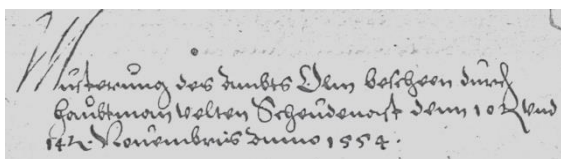 Musterung des Ambts Olm bescheen durch
haubtman Velten Scheudenast denn 10t vnd
14t. Nouembris Anno 1554.